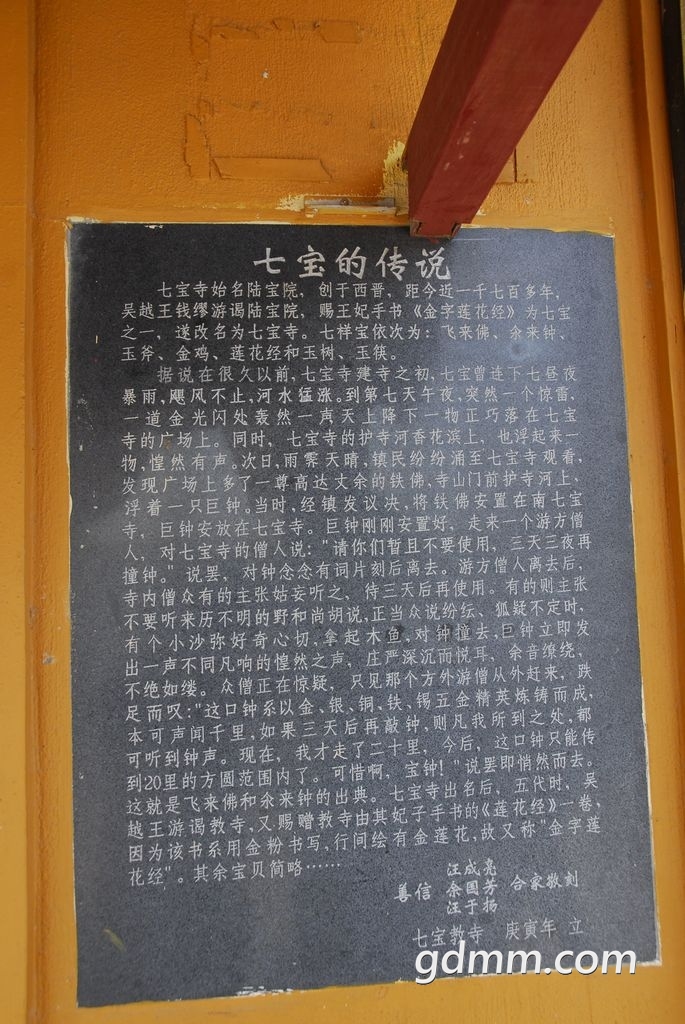 七宝的传说
七宝寺始名陆宝院，创于西晋，距今近一千七百多年，
吴越王钱缪游谒陆宝院，赐王妃手书《金字莲花经》为七宝
之一，遂改名为七宝寺。七样宝依次为：飞来佛、氽来钟、
玉斧、金鸡、莲花经和玉树、玉筷。
据说在很久以前，七宝寺建寺之初，七宝曾连下七昼夜
暴雨，飓风不止，河水猛涨。到第七天午夜，突然一个惊雷，
一道金光闪处轰然一声天上降下一物正巧落在七宝
寺的广场上。同时，七宝寺的护寺河香花浜上，也浮起来一
物，惶然有声。次日，雨霁天晴，镇民纷纷涌至七宝寺观看，
发现广场上多了一尊高达丈余的铁佛，寺山门前护寺河上，
浮着一只巨钟。当时，经镇发议决，将铁佛安置在南七宝
寺，巨钟安放在七宝寺。巨钟刚刚安置好，走来一个游方僧
人，对七宝寺的僧人说："请你们暂且不要使用，三天三夜再
撞钟。"说罢，对钟念念有词片刻后离去。游方僧人离去后，
寺内僧众有的主张姑妄听之，待三天后再使用。有的则主张
不要听来历不明的野和尚胡说，正当众说纷纭、狐疑不定时，
有个小沙弥好奇心切，拿起木鱼，对钟撞去，巨钟立即发
出一声不同凡响的惶然之声，庄严深沉而悦耳，余音缭绕，
不绝如缕。众僧正在惊疑，只见那个方外游僧从外赶来，跌
足而叹："这口钟系以金、银、铜、铁、锡五金精英炼铸而成，
本可声闻千里，如果三天后再敲钟，则凡我所到之处，都
可听到钟声。现在，我才走了二十里，今后，这口钟只能传
到20里的方圆范围内了。可惜啊，宝钟！"说罢即悄然而去。
这就是飞来佛和氽来钟的出典。七宝寺出名后，五代时，吴
越王游谒教寺，又赐赠教寺由其妃子手书的《莲花经》一卷，
因为该书系用金粉书写，行间绘有金莲花，故又称"金字莲
花经"。其余宝贝简略……
汪成亮
善信 余圆芳 合家敬刻
汪于扬
七宝教寺 庚寅年 立
gdmm.com